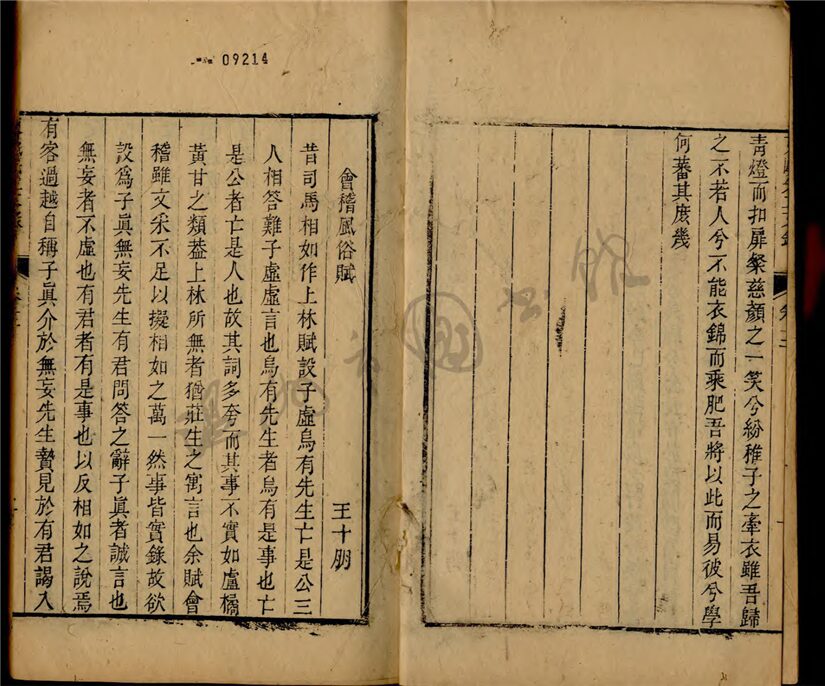 青燈而扣扉粲慈顏之一笑兮紛稚子之牽衣雖吾歸
之不若人兮不能衣錦而乘肥吾將以此而易彼兮學
何蕃其庶幾
09214
會稽風俗賦
王十朋
昔司馬相如作上林賦設子虛烏有先生亡是公三
人相答難子虛虛言也烏有先生者烏有是事也亡
是公者亡是人也故其詞多夸而其事不實如盧橘
黃甘之類葢上林所無者猶莊生之寓言也余賦會
稽雖文采不足以擬相如之萬一然事皆實錄故欲
設爲子眞無妄先生有君問答之辭子眞者誠言也
無妄者不虛也有君者有是事也以反相如之說焉
有客過越自稱子眞介於無妄先生贄見於有君謁入